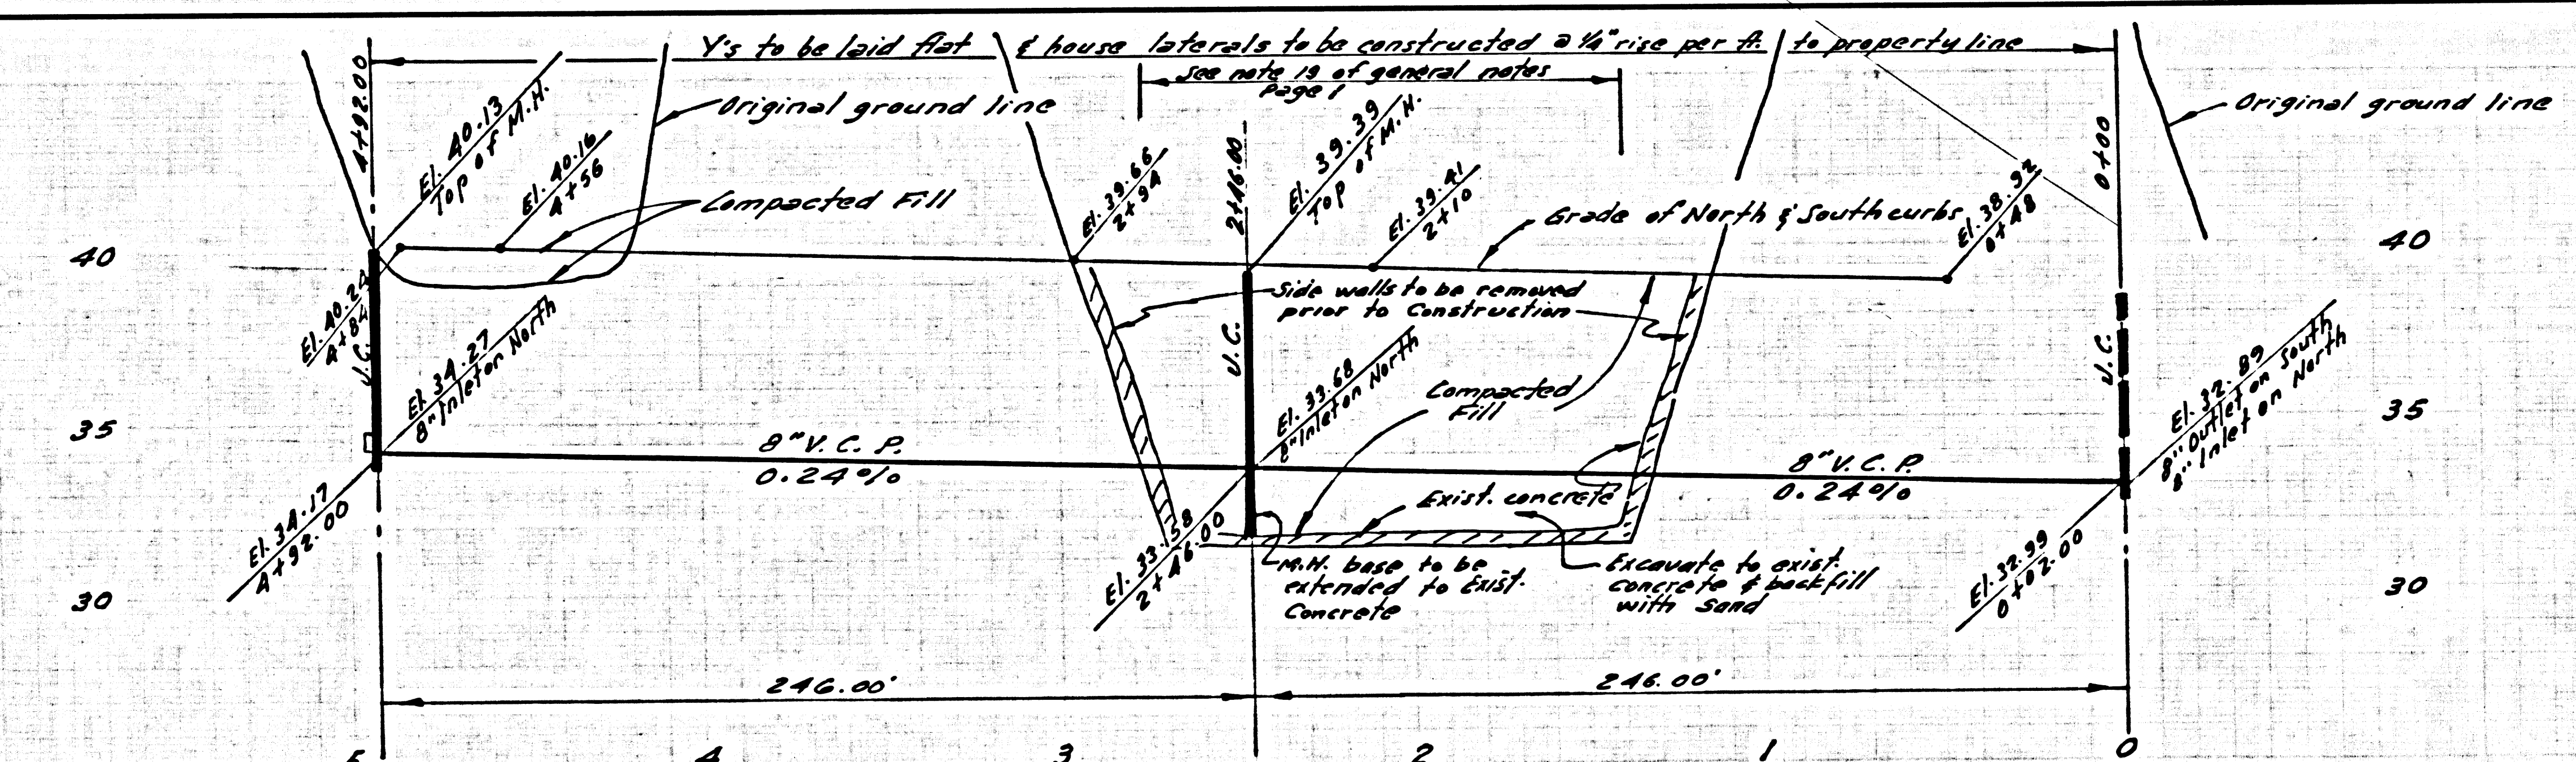 Y's to be laid flat & house laterals to be constructed @ 1/4" rise per ft. to property line
See note 19 of general notes
Page 1
4+92.00
El. 40.13
Top of M.H.
El. 40.16
4+56
Original ground line
Compacted Fill
El. 39.66
2+94
2+46.00
El. 39.39
Top of M.H.
El. 39.41
2+10
Grade of North & South curbs
El. 38.92
0+48
0+00
Original ground line
40
40
El. 40.24
4+84
J.C.
El. 34.27
8" Inlet on North
Side walls to be removed
prior to Construction
J.C.
El. 33.68
8" Inlet on North
Compacted
Fill
J.C.
El. 32.89
8" Outlet on South
8" Inlet on North
35
35
8" V.C.P.
0.24%
8" V.C.P.
0.24%
Exist. concrete
El. 34.17
4+92.00
El. 33.58
2+46.00
M.H. base to be
extended to Exist.
Concrete
Excavate to exist.
concrete & backfill
with Sand
El. 32.99
0+02.00
30
30
246.00'
246.00'
5
4
3
2
1
0